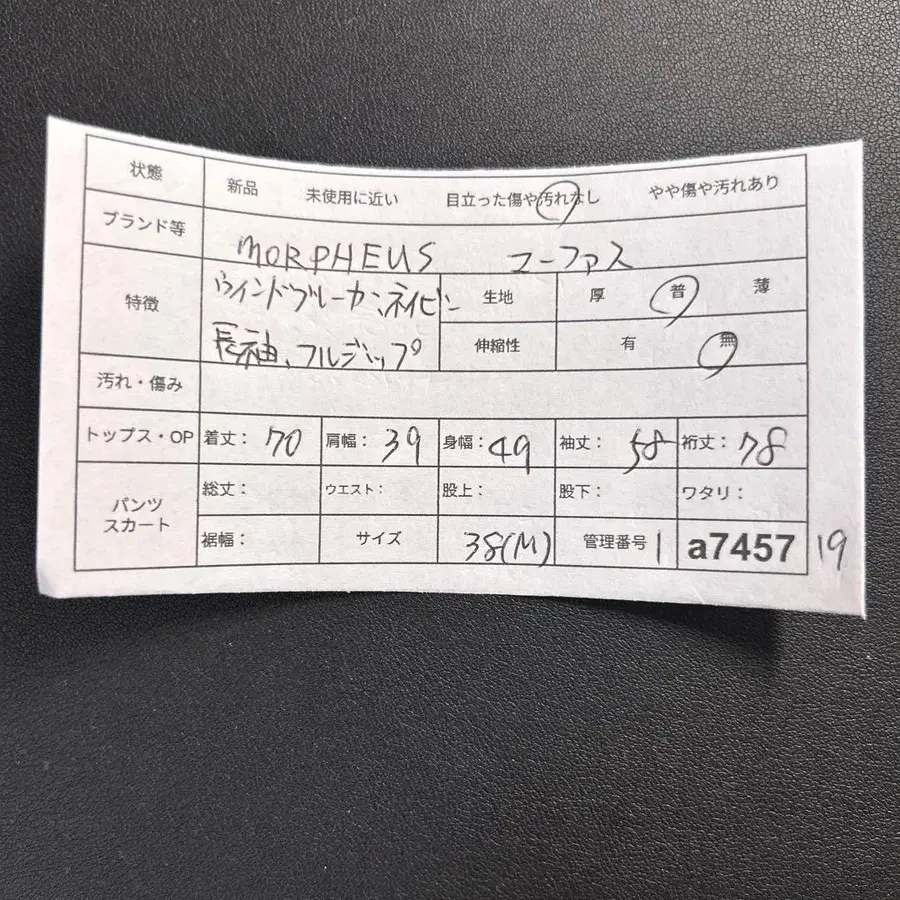 状態 新品 未使用に近い 目立った傷や汚れなし やや傷や汚れあり
ブランド等 MORPHEUS コーファス
特徴 ウインドブレーカー、ネイビー 生地 厚 普 薄
長袖、フルジップ 伸縮性 有 無
汚れ・傷み
トップス・OP 着丈： 70 肩幅： 39 身幅： 49 袖丈： 58 裄丈： 78
パンツ スカート 総丈： ウエスト： 股上： 股下： ワタリ：
裾幅： サイズ 38(M) 管理番号 1 a7457 19